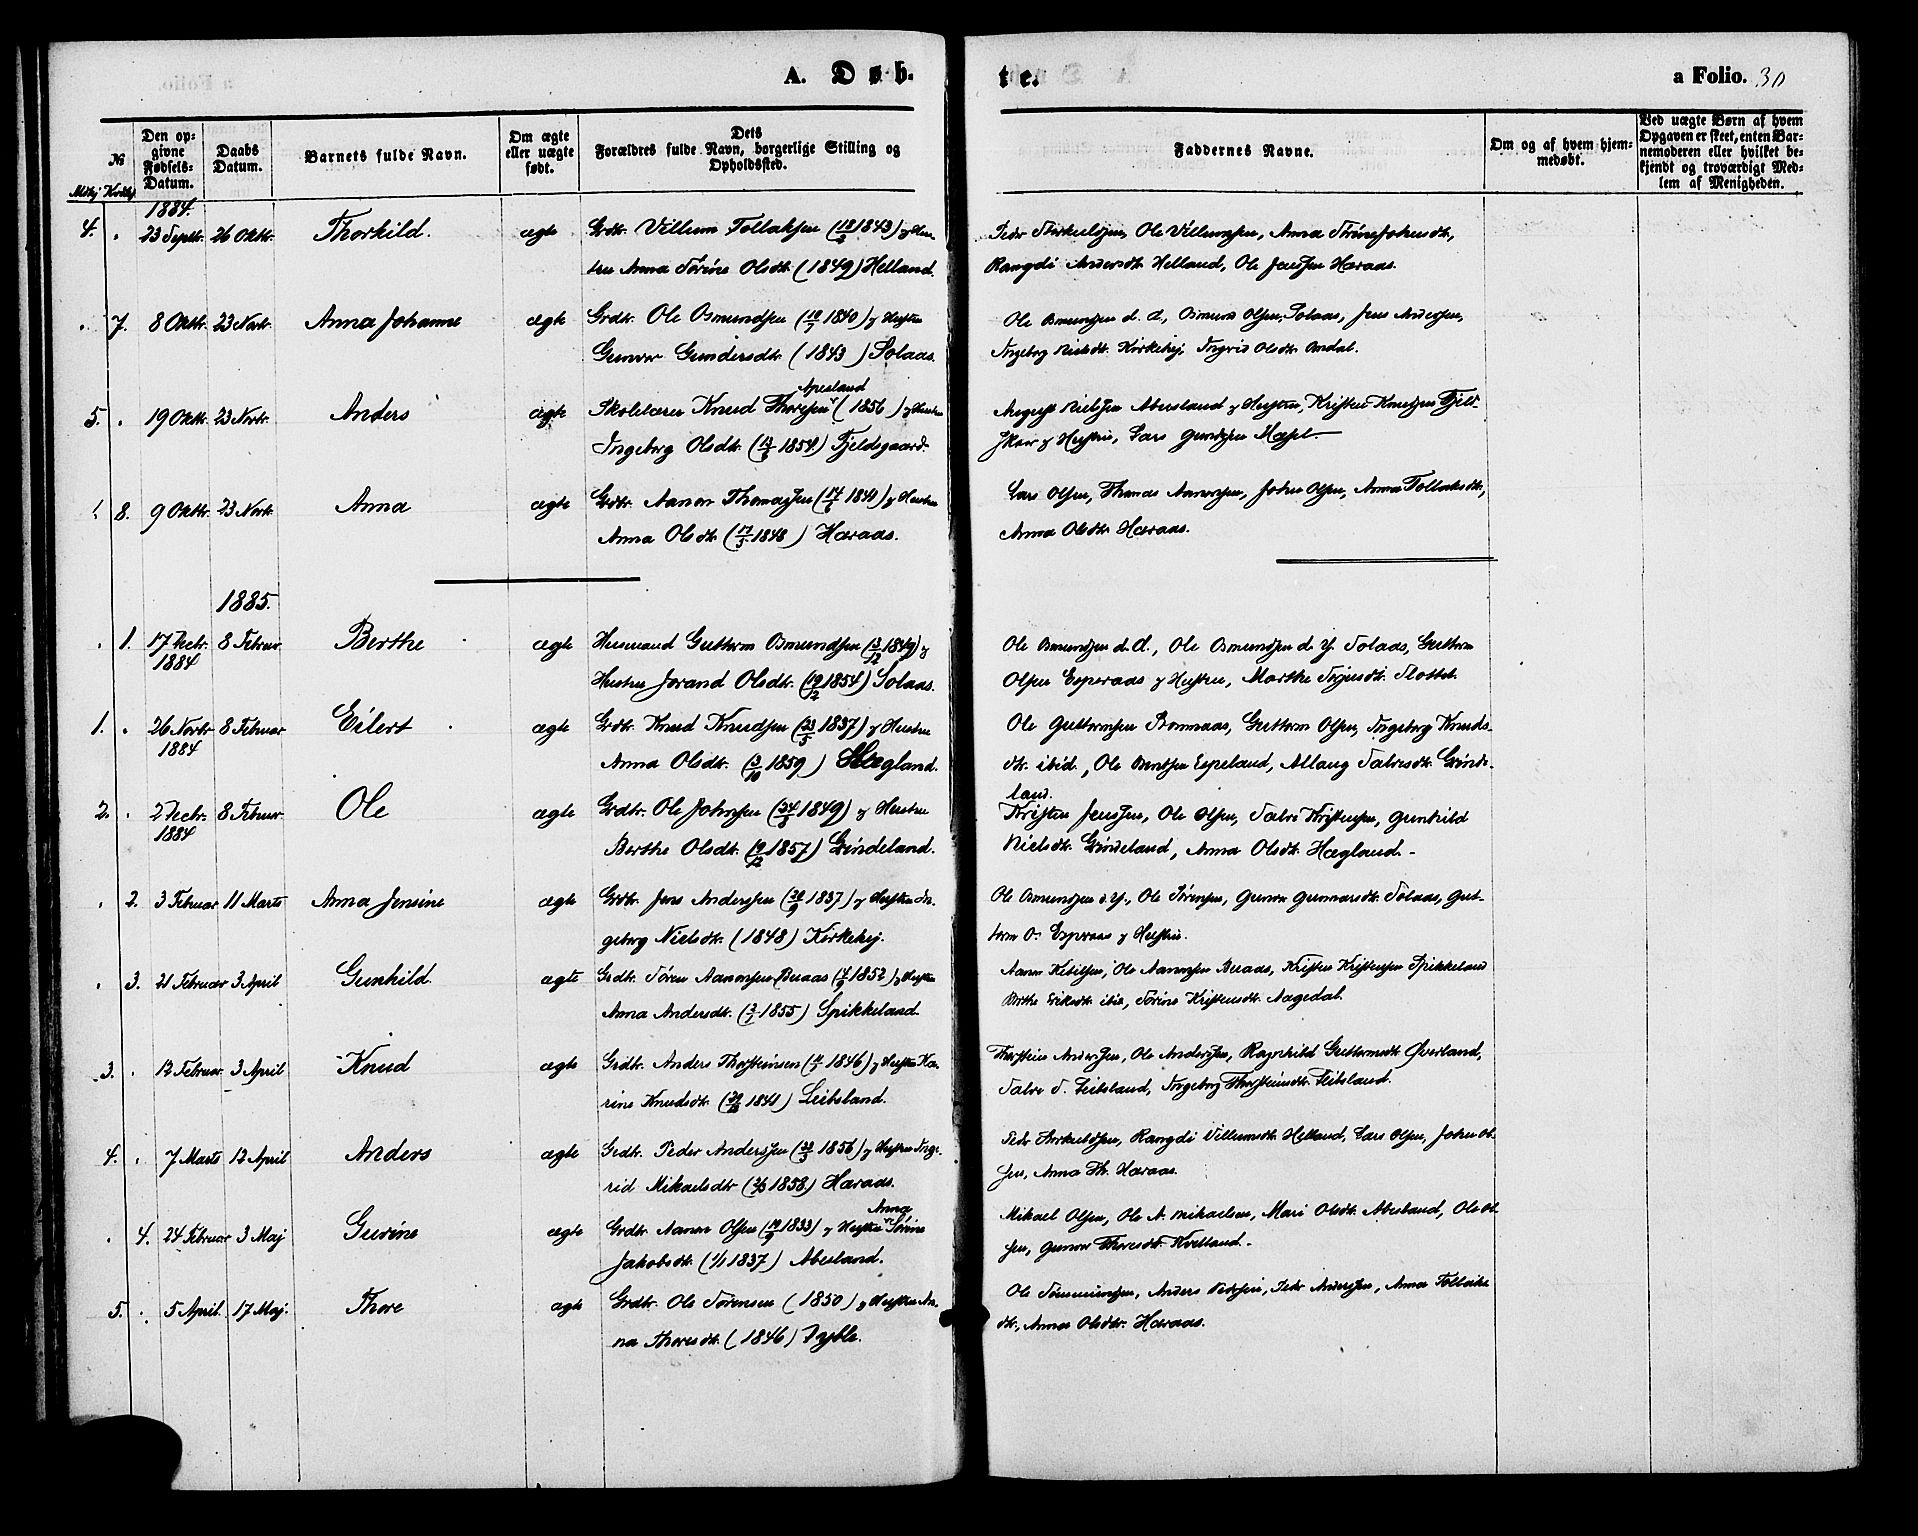 A. Døb-
te.
a Folio. 30
№
Mdkj Kvdkj
Den op-
givne
Fødsels-
Datum.
Daabs
Datum.
Barnets fulde Navn.
Om ægte
eller uægte
født.
Dets
Forældres fulde Navn, borgerlige Stilling og
Opholdssted.
Faddernes Navne.
Om og af hvem hjem-
medøbt.
Ved uægte Børn af hvem
Opgaven er skeet, enten Bar-
nemoderen eller hvilket be-
kjendt og troværdigt Med-
lem af Menigheden.
1884.
4. 23 Septbr. 26 Oktbr. Thorkild. ægte Grdbr. Villum Tollaksen (1843) og Hus-
tru Anna Sørine Olsdtr. (1849) Helland.
Peder Thorkildsen, Ole Villumsen, Anna Sørine Johnsdtr.,
Rangdi Andersdtr. Helland, Ole Jensen Haraas.
7. 8 Oktbr. 23 Novbr. Anna Johanne ægte Grdbr. Ole Osmundsen (19/7 1840) og Hustru
Gunvor Gundersdtr. (1843) Solaas.
Ole Osmundsen d. æ., Osmund Olsen, Solaas, Jens Andersen,
Ingeborg Nielsdtr. Kirkehej, Ingrid Olsdtr. Omdal.
5. 19 Oktbr. 23 Novbr. Anders ægte Skolelærer Knud Thoresen (1856) og Hustru
Apesland
Ingeborg Olsdtr. (1854) Fjeldsgaard.
August Nielsen Abusland og Hustru, Kristen Knudsen Fjeld-
skar og Hustru, Lars Gundersen Mæsel.
8. 9 Oktbr. 23 Novbr. Anna ægte Grdbr. Aanon Thomassen (14/6 1841) og Hustru
Anna Olsdtr. (17/5 1848) Haraas.
Lars Olsen, Thomas Aanonsen, John Olsen, Anna Tollaksdtr.,
Anna Olsdtr. Haraas.
1885.
1. 17 Decbr. 8 Februar Berthe ægte Husmand Guttorm Osmundsen (3/12 1849) og
1884
Hustru Jorand Olsdtr. (19/12 1854) Solaas.
Ole Osmundsen d. æ., Ole Osmundsen d. y. Solaas, Guttorm
Olsen Espraas og Hustru, Marthe Tarjesdtr. Slottet.
1. 26 Novbr. 8 Februar Eilert ægte Grdbr. Knud Knudsen (23/5 1837) og Hustru
1884
Anna Olsdtr. (3/10 1859) Hægland.
Ole Guttormsen Bommaas, Guttorm Olsen, Ingeborg Knuds-
dtr. ibid., Ole Berntsen Espeland, Allaug Salvesdtr. Grinde-
land.
2. 2 Decbr. 8 Februar Ole ægte Grdbr. Ole Johnsen (1849) og Hustru
1884
Berthe Olsdtr. (19/12 1857) Grindeland.
Kristen Jensen, Ole Olsen, Salve Kristensen, Gunhild
Nielsdtr. Grindeland, Anna Olsdtr. Hægland.
2. 3 Februar 11 Marts Anna Jensine ægte Grdbr. Jens Andersen (20/9 1837) og Hustru In-
geborg Nielsdtr. (1848) Kirkehej.
Ole Osmundsen d. y., Ole Sørensen, Gunvor Gunnarsdtr. Solaas, Gut-
torm O. Espraas og Hustru.
3. 21 Februar 3 April Gunhild. ægte Grdbr. Søren Aanonsen Beraas (1852) og Hustru
Anna Andersdtr. (1855) Spikkeland.
Aanon Ketilsen, Ole Aanonsen Beraas, Kristen Kristensen Spikkeland
Berthe Eriksdtr. ibid, Sørine Kristensdtr. Aagedal.
3. 12 Februar 3 April Knud ægte Grdbr. Anders Thorsteinsen (1846) og Hustru Ka-
rine Knudsdtr. (1841) Leibsland.
Thorstein Andersen, Ole Andersen, Ragnhild Guttormsdtr. Øverland,
Salve S. Leibsland, Ingeborg Thorsteinsdtr. Leibsland.
4. 7 Marts 12 April Anders ægte Grdbr. Peder Andersen (1856) og Hustru Ing-
rid Mikaelsdtr (1858.) Haraas.
Peder Thorkildsen, Rangdi Villumsdtr. Helland, Lars Olsen, John Ol-
sen, Anna Th. Haraas.
4. 24 Februar 3 Maj Gurine ægte Grdbr. Aanon Olsen (1833) og Hustru Sørine
Anna
Jakobsdtr. (1/1 1837) Abusland.
Mikael Olsen, Ole A. Mikaelsen, Mari Olsdtr. Abusland, Ole Ol-
sen, Gunvor Thoresdtr. Kvelland.
5. 5 April. 17 Maj. Thore ægte Grdbr. Ole Sørensen (1850) og Hustru An-
na Thoresdtr. (1846)
Anders Pedersen, Peder Andersen, Anna Tollaks-
dtr., Anna Olsdtr. Haraas.